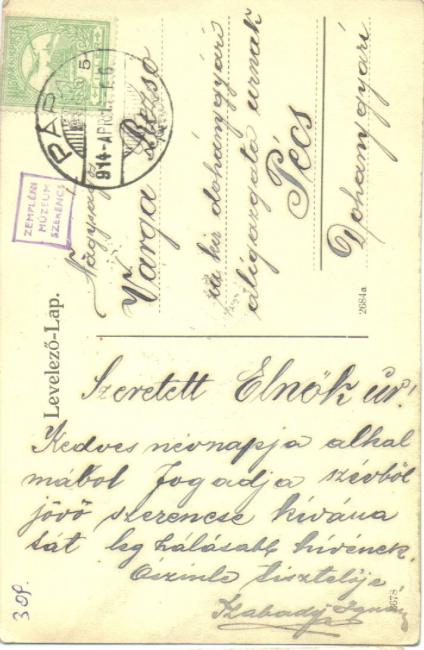 PÁPA
914 APR. 5
ZEMPLÉNI
MÚZEUM
SZERENCS
Levelező-Lap.
Nagyságos
Varga Rezső
m kir dohánygyári
aligazgató urnak
Pécs
Dohánygyári
2684a
Szeretett Elnök úr!
Kedves névnapja alkal
mából Fogadja szívből
jövő szerencse kívána
tát leg hálásabb hívének.
Őszinte tisztelője
Szabady Ignác
309.
2678